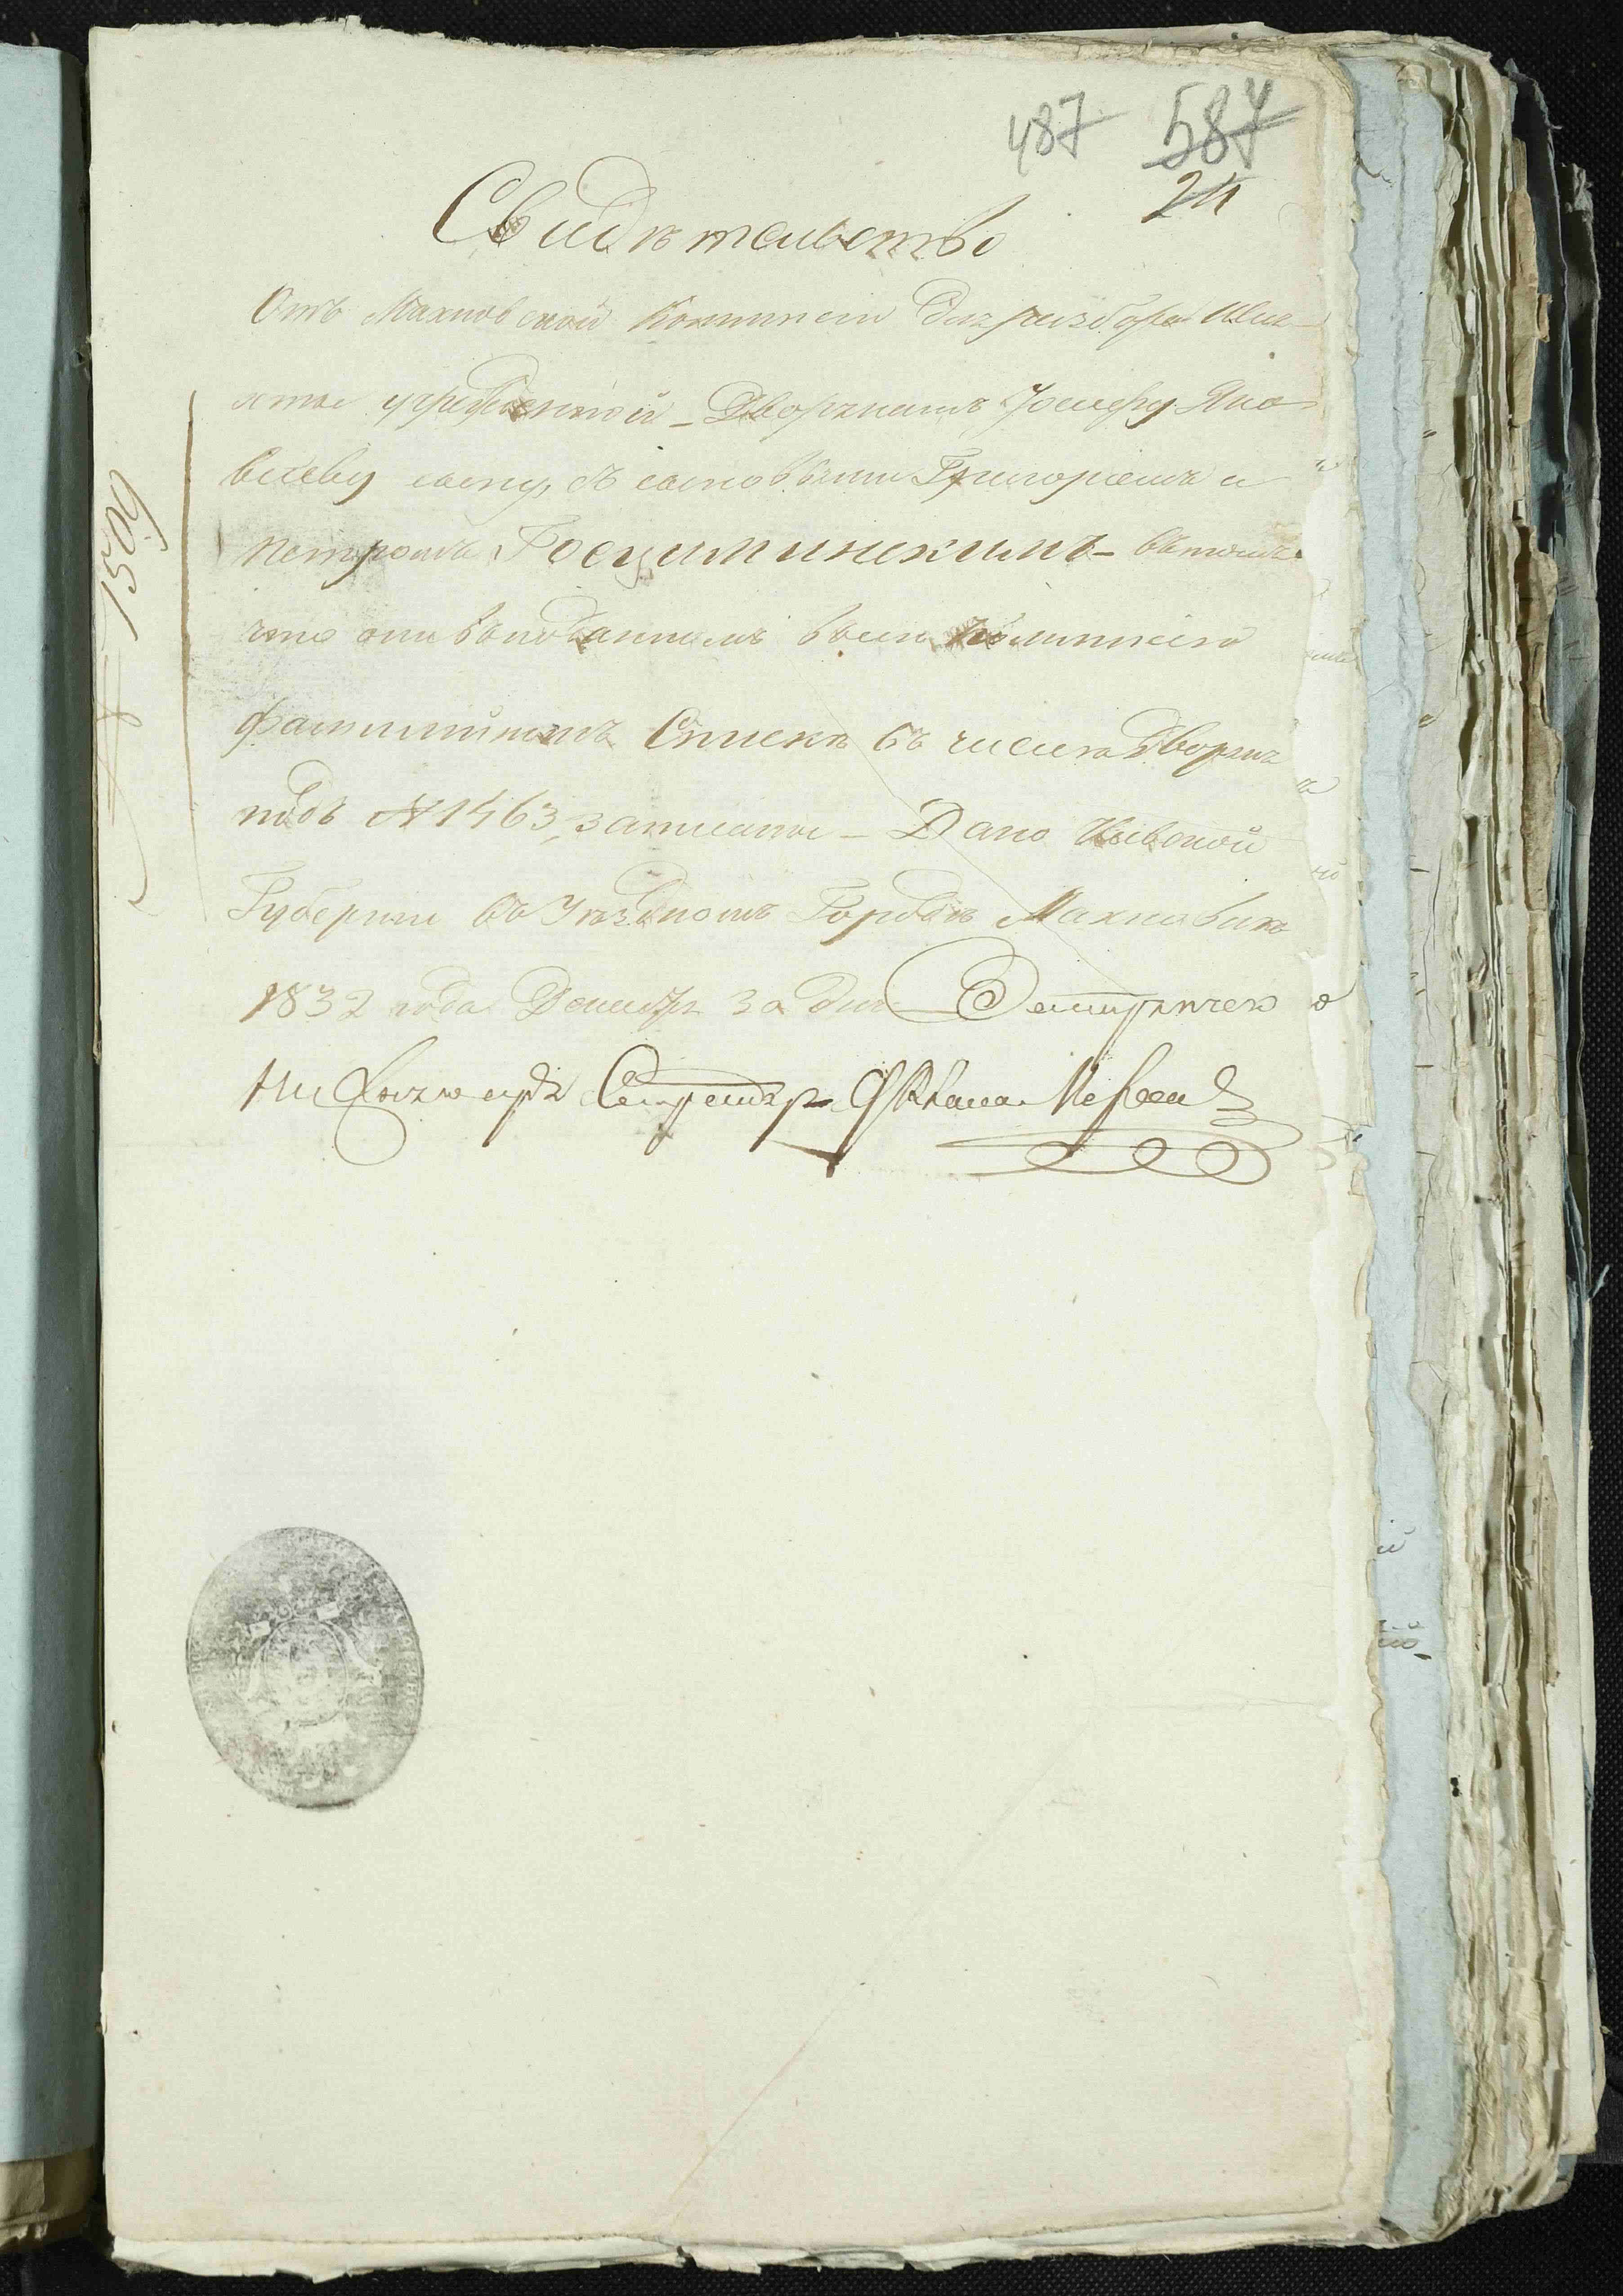 487 587
24
Свидѣтельство
Отъ Махновской Коммисіи для разбора Шля-
хты учрежденной – Дворянамъ Іосифу Яко
влеву сыну, съ сыновьями Григоріемъ и
Петромъ Госциминскимъ – въ томъ
что они въ поданномъ въ сію Коммисію
фамилійномъ Спискѣ въ число Дворянъ
подъ №1463, записаны – Дано Кіевской
Губерніи въ Уѣздномъ Городѣ Махновкѣ
1832 года Декабря 30 дня
Секретарь
№ 1509